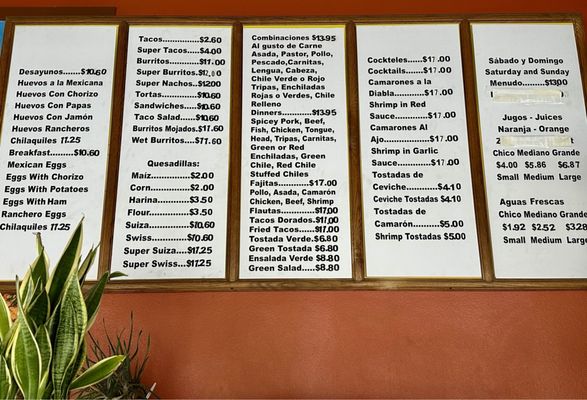 Desayunos.......$10.60
Huevos a la Mexicana
Huevos Con Chorizo
Huevos Con Papas
Huevos Con Jamón
Huevos Rancheros
Chilaquiles 11.25
Breakfast..........$10.60
Mexican Eggs
Eggs With Chorizo
Eggs With Potatoes
Eggs With Ham
Ranchero Eggs
Chilaquiles 11.25
Tacos...............$2.60
Super Tacos......$4.00
Burritos............$11.00
Super Burritos.$12.00
Super Nachos..$12.00
Tortas..............$10.60
Sandwiches.....$10.60
Taco Salad.......$10.60
Burritos Mojados.$11.60
Wet Burritos....$11.60
Quesadillas:
Maíz................$2.00
Corn................$2.00
Harina.............$3.50
Flour...............$3.50
Suiza..............$10.60
Swiss.............$10.60
Super Suiza....$11.25
Super Swiss...$11.25
Combinaciones $13.95
Al gusto de Carne
Asada, Pastor, Pollo,
Pescado,Carnitas,
Lengua, Cabeza,
Chile Verde o Rojo
Tripas, Enchiladas
Rojas o Verdes, Chile
Relleno
Dinners.............$13.95
Spicey Pork, Beef,
Fish, Chicken, Tongue,
Head, Tripas, Carnitas,
Green or Red
Enchiladas, Green
Chile, Red Chile
Stuffed Chiles
Fajitas.............$17.00
Pollo, Asada, Camarón
Chicken, Beef, Shrimp
Flautas............$11.00
Tacos Dorados.$11.00
Fried Tacos......$11.00
Tostada Verde.$6.80
Green Tostada $6.80
Ensalada Verde $8.80
Green Salad.....$8.80
Cockteles......$17.00
Cocktails.......$17.00
Camarones a la
Diabla............$17.00
Shrimp in Red
Sauce............$17.00
Camarones Al
Ajo.................$17.00
Shrimp in Garlic
Sauce............$17.00
Tostadas de
Ceviche..........$4.10
Ceviche Tostadas $4.10
Tostadas de
Camarón.........$5.00
Shrimp Tostadas $5.00
Sábado y Domingo
Saturday and Sunday
Menudo.......$13.90
Jugos - Juices
Naranja - Orange
Chico Mediano Grande
$4.00 $5.86 $6.87
Small Medium Large
Aguas Frescas
Chico Mediano Grande
$1.92 $2.52 $3.28
Small Medium Large